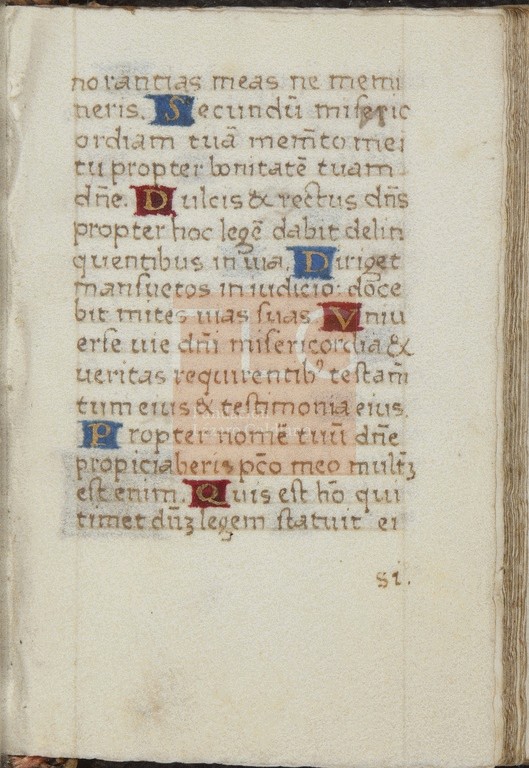 norantias meas ne memi
neris. Secundũ miseric
ordiam tuã memẽto mei
tu propter bonitatẽ tuam
dñe. Dulcis & rectus dñs
propter hoc legẽ dabit delin
quentibus in uia. Diriget
mansuetos in iudicio: doce
bit mites uias suas. Vniu
erse uie dñi misericordia &
ueritas requirentibꝰ testam̃
tum eius & testimonia eius.
Propter nomẽ tuũ dñe
propiciaberis pc̃o meo multũʒ
est enim. Quis est hõ qui
timet dũʒ legem statuit ei
51.